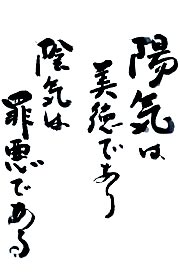 陽気は
美徳であり
陰気は
罪悪である